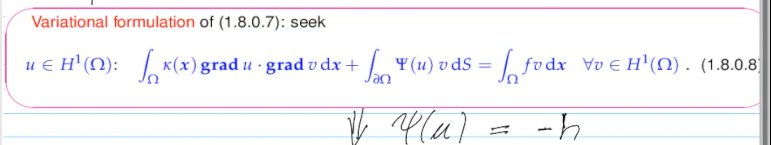 Variational formulation of (1.8.0.7): seek
u ∈ H¹(Ω): ∫_Ω κ(x) grad u · grad v dx + ∫_∂Ω Ψ(u) v dS = ∫_Ω f v dx ∀v ∈ H¹(Ω) . (1.8.0.8
⇓ Ψ(u) = -h